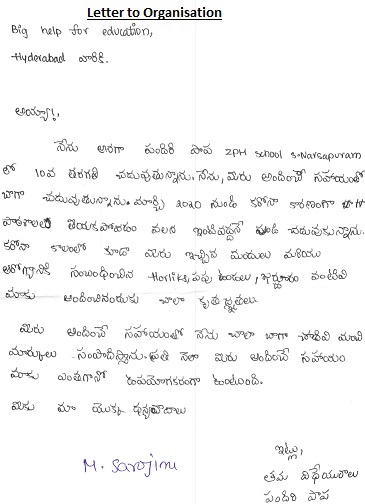 Letter to Organisation
Big help for education,
Hyderabad వారికి.
అయ్యా!,
నేను అనగా పందిరి పాప ZPH School S.Narsapuram
లో 10వ తరగతి చదువుతున్నాను. నేను, మీరు అందించే సహాయంతో
బాగా చదువుతున్నాను. మార్చి 2020 నుండి కరోనా కారణంగా
పాఠశాలలు తీయకపోవడం వలన ఇంటివద్దనే ఉండి చదువుకున్నాను.
కరోనా కాలంలో కూడా మీరు ఇచ్చిన మరియు
ఆరోగ్యానికి సంబంధించిన Horliks, పప్పు ఉండలు, ఖర్జూరం వంటివి
మాకు అందించినందుకు చాలా కృతజ్ఞతలు
మీరు అందించే సహాయంతో నేను చాలా బాగా చదివి మంచి
మార్కులు సంపాదిస్తాను. ప్రతి నెలా మీరు అందించే సహాయం
మాకు ఎంతగానో ఉపయోగకరంగా ఉంటుంది.
మీకు మా యొక్క ధన్యవాదాలు
ఇట్లు,
M. Sarojini
తమ విధేయురాలు
పందిరి పాప